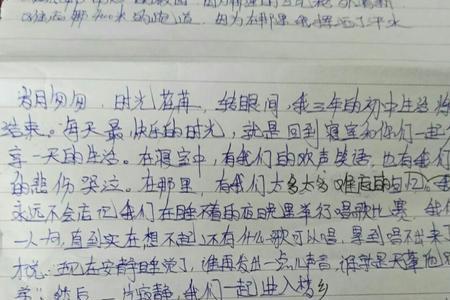 的跑道，因为在那里我挥洒了汗水
岁月匆匆，时光荏苒，转眼间，我三年的初中生活将
结束。每天最快乐的时光，就是回到寝室和你们一起分
享一天的生活。在寝室中，有我们的欢声笑语，也有我们
的悲伤哭泣。在那里，有我们太多太多难忘的回忆。我
永远不会忘记我们在睡不着的夜晚里举行唱歌比赛，我们
一人一句，直到实在想不起还有什么歌可以唱，累到唱不出来了
才说：现在安静睡觉了，谁再发出一点儿声音，谁就是天蓬元
然后一片寂静，我们一起进入梦乡